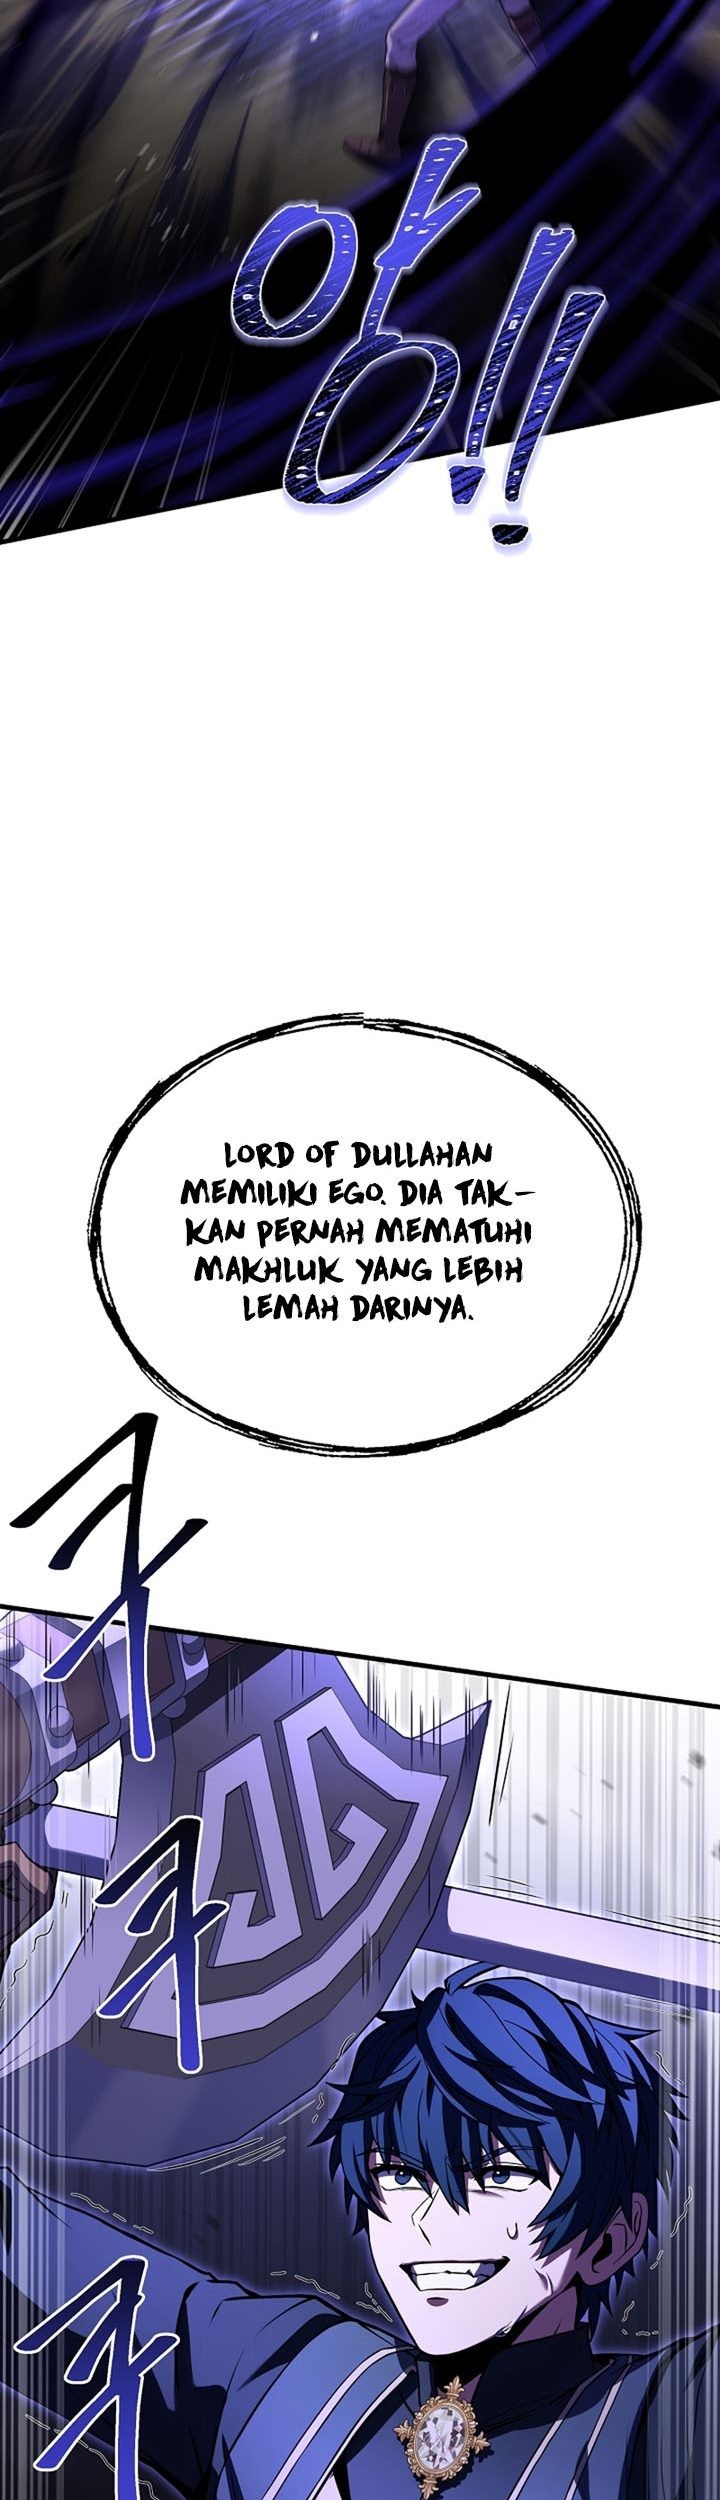 앙!!
LORD OF DULLAHAN
MEMILIKI EGO. DIA TAK-
KAN PERNAH MEMATUHI
MAKHLUK YANG LEBIH
LEMAH DARINYA.
키
키
키